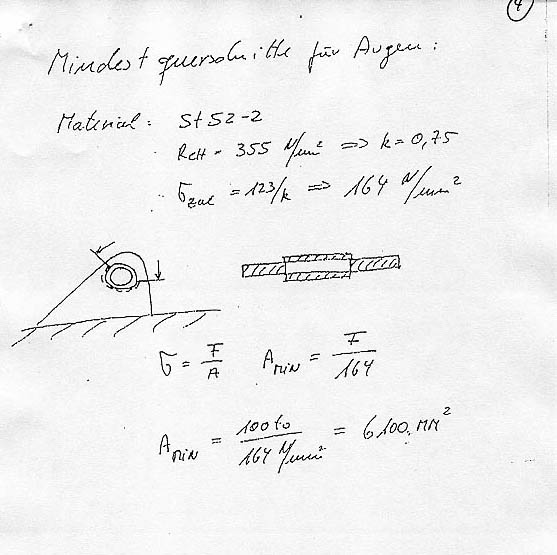 4
Mindestquerschnitte für Augen:
Material: St 52-2
ReH = 355 N/mm² => k = 0,75
σzul = 123/k => 164 N/mm²
σ = F/A   Amin = F/164
Amin = 100 to / 164 N/mm² = 6100 mm²